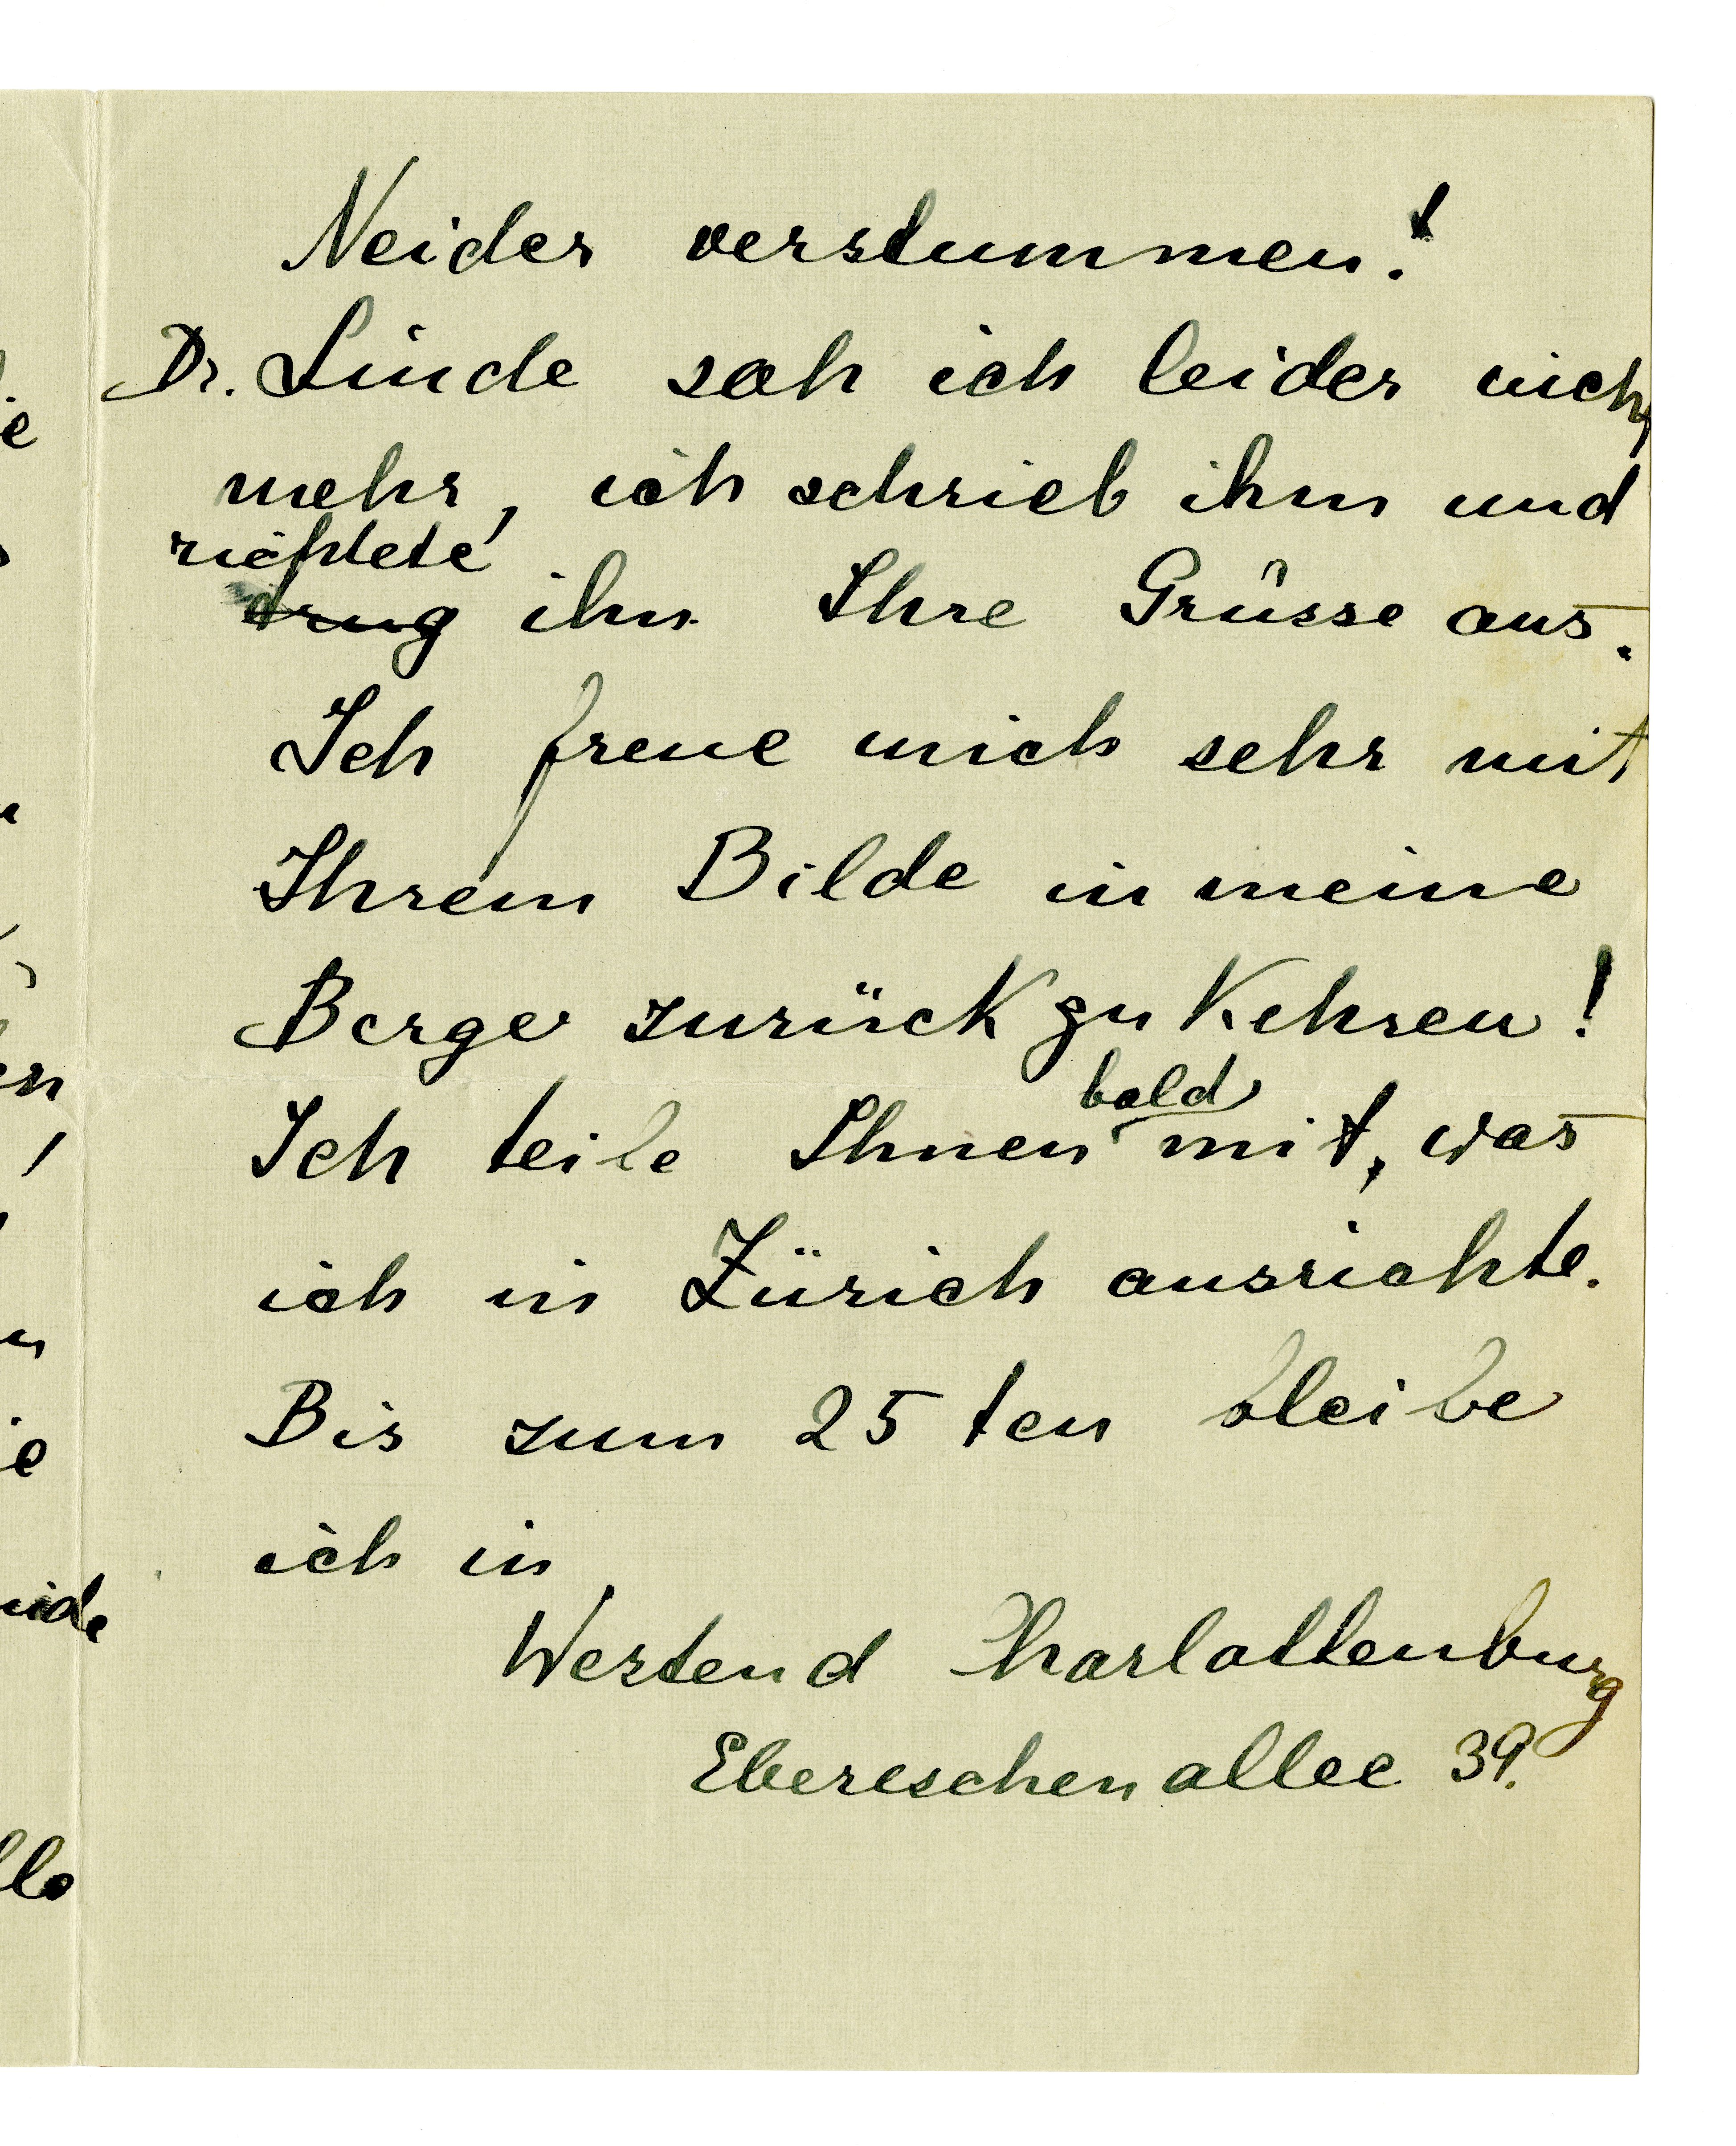 Neider verstummen!
Dr. Linde sah ich leider nicht
mehr, ich schrieb ihm und
richtete
drug ihm Ihre Grüsse aus.
Ich freue mich sehr mit
Ihrem Bilde in meine
Berge zurück zu kehren!
bald
Ich teile Ihnen mit, was
ich in Zürich ausrichte.
Bis zum 25ten bleibe
ich in
Westend Charlottenburg
Ebereschenallee 39.